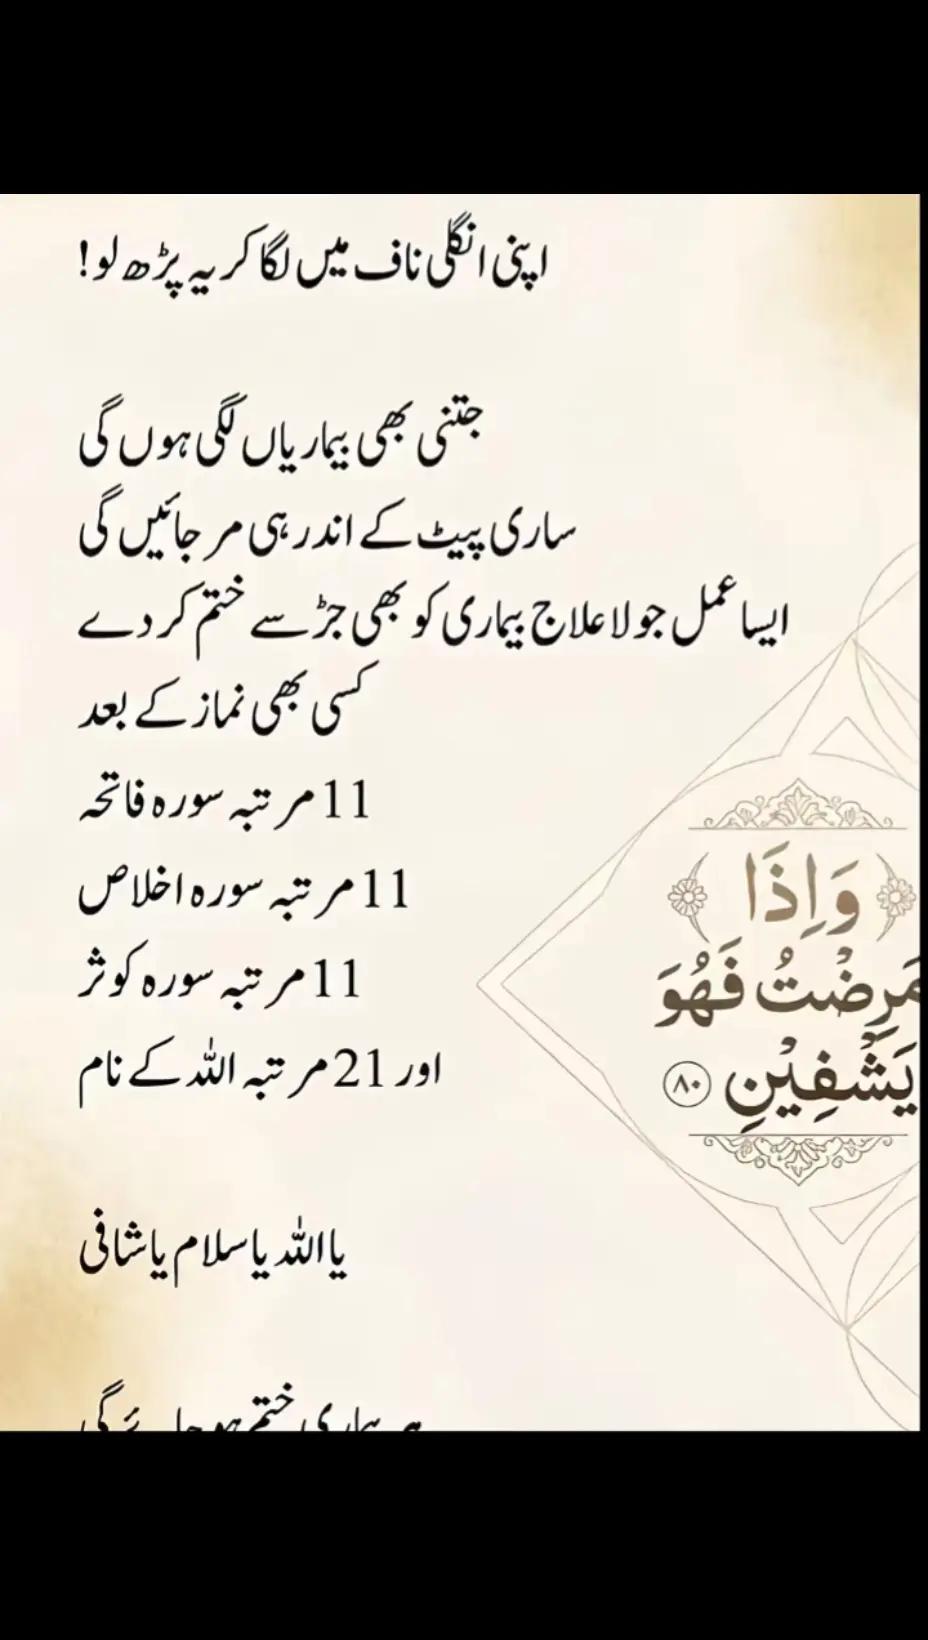 اپنی انگلی ناف میں لگا کر یہ پڑھ لو!
جتنی بھی بیماریاں لگی ہوں گی
ساری پیٹ کے اندر ہی مر جائیں گی
ایسا عمل جو لاعلاج بیماری کو بھی جڑ سے ختم کر دے
کسی بھی نماز کے بعد
11 مرتبہ سورہ فاتحہ
11 مرتبہ سورہ اخلاص
11 مرتبہ سورہ کوثر
اور 21 مرتبہ اللہ کے نام
یااللہ یاسلام یاشافی
ہر بیماری ختم ہو جائے گی
وَاِذَا
مَرِضْتُ فَهُوَ
يَشْفِيْنِ ٨٠